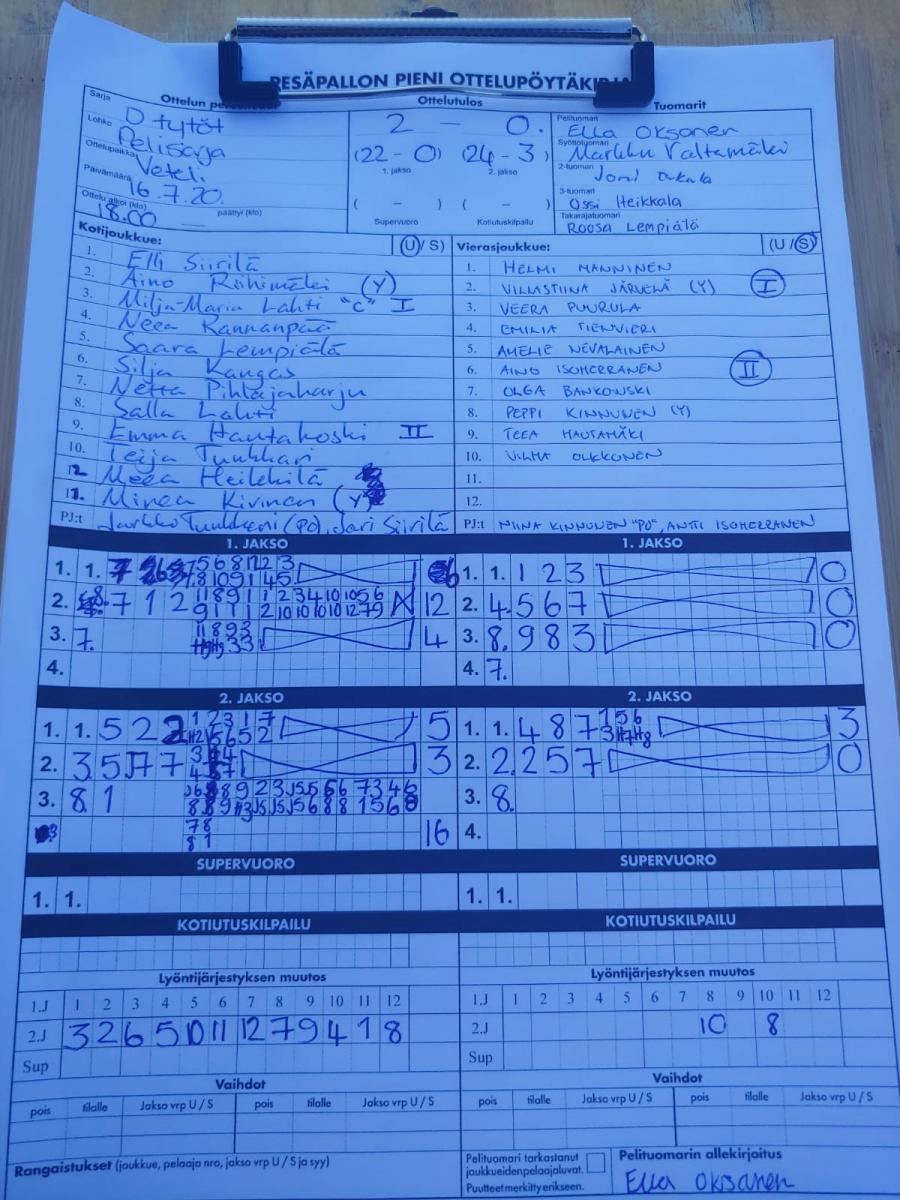 PESÄPALLON PIENI OTTELUPÖYTÄKIRJA
Ottelun Ottelutulos Tuomarit
Sarja D tytöt
Lohko Pelisarja
Ottelupaikka Veteli
Päivämäärä 16.7.20.
Ottelu alkoi (klo) 18.00 päättyi (klo)
2 – 0.
(22 – 0) (24 – 3)
1. jakso 2. jakso
( – ) ( – )
Supervuoro Kotiutuskilpailu
Pelituomari Ella Oksanen
Syöttötuomari Markku Valtamäki
2-tuomari Joni
3-tuomari Ossi Heikkala
Takarajatuomari Roosa Lempiälä
Kotijoukkue: (U / S)
1. Elli Siirilä
2. Aino Riihimäki (Y)
3. Milja-Maria Lahti "C" I
4. Neea Kannanpää
5. Saara Lempiälä
6. Silja Kangas
7. Netta Pihlajaharju
8. Salla Lahti
9. Emma Hautakoski II
10. Teija Tunkkari
12. Meea Heikkilä
11. Minea Kivinen (Y)
PJ:t Jarkko (PO), Jari Siirilä
Vierasjoukkue: (U / S)
1. HELMI MANNINEN
2. VILLASTIINA JÄRVELÄ (Y) I
3. VEERA PUURULA
4. EMILIA TIENVIERI
5. AMELIE NEVALAINEN
6. AINO ISOHERRANEN II
7. OLGA BANKOWSKI
8. PEPPI KINNUNEN (Y)
9. TEEA HAUTAMÄKI
10. VILMA OLKKONEN
11.
12.
PJ:t NIINA KINNUNEN "PO", ANTTI ISOHERRANEN
1. JAKSO
1. 1. 7
2. 7 1 2 12
3. 7. 4
4.
1. JAKSO
1. 1. 1 2 3 0
2. 4. 5 6 7 0
3. 8. 9 8 3 0
4. 7.
2. JAKSO
1. 1. 5 2 2 5
2. 3 5 7 7 3
3. 8. 1
16
2. JAKSO
1. 1. 4 8 7 3
2. 2. 2 5 7 0
3. 8.
4.
SUPERVUORO
1. 1.
SUPERVUORO
1. 1.
KOTIUTUSKILPAILU
KOTIUTUSKILPAILU
Lyöntijärjestyksen muutos
1.J 1 2 3 4 5 6 7 8 9 10 11 12
2.J 3 2 6 5 10 11 12 7 9 4 1 8
Sup
Lyöntijärjestyksen muutos
1.J 1 2 3 4 5 6 7 8 9 10 11 12
2.J 10 8
Sup
Vaihdot
pois tilalle Jakso vrp U / S pois tilalle Jakso vrp U / S
Vaihdot
pois tilalle Jakso vrp U / S pois tilalle Jakso vrp U / S
Rangaistukset (joukkue, pelaaja nro, jakso vrp U / S ja syy)
Pelituomari tarkastanut
joukkueidenpelaajaluvat.
Puutteet merkitty erikseen.
Pelituomarin allekirjoitus
Ella Oksanen